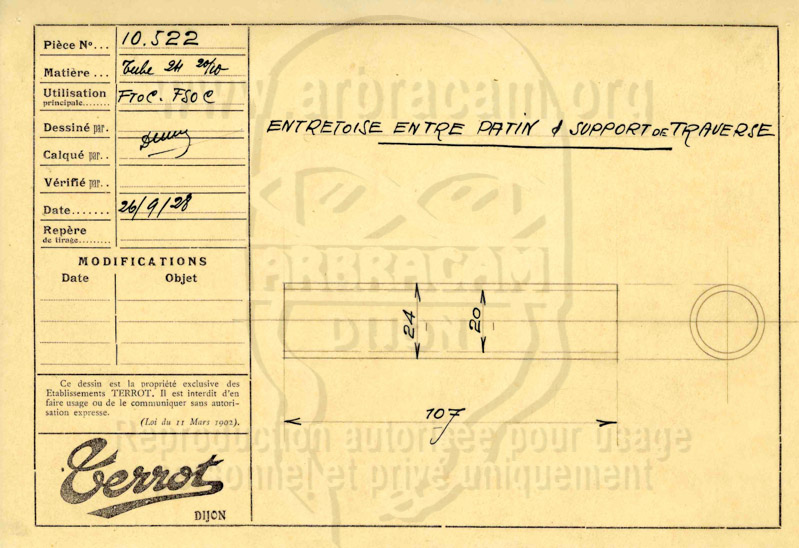 Pièce Nº... 10.522
Matière ... Tube 24 20/10
Utilisation
principale....... FTOC. FSOC
Dessiné par.
Calqué par..
Vérifié par..
Date....... 26/9/28
Repère
de tirage.........
MODIFICATIONS
Date Objet
Ce dessin est la propriété exclusive des
Etablissements TERROT. Il est interdit d'en
faire usage ou de le communiquer sans autori-
sation expresse.
(Loi du 11 Mars 1902).
Terrot
DIJON
www.arbracam.org
ENTRETOISE ENTRE PATIN & SUPPORT DE TRAVERSE
ARBRACAM
DIJON
24
20
107
Reproduction autorisée pour usage
personnel et privé uniquement